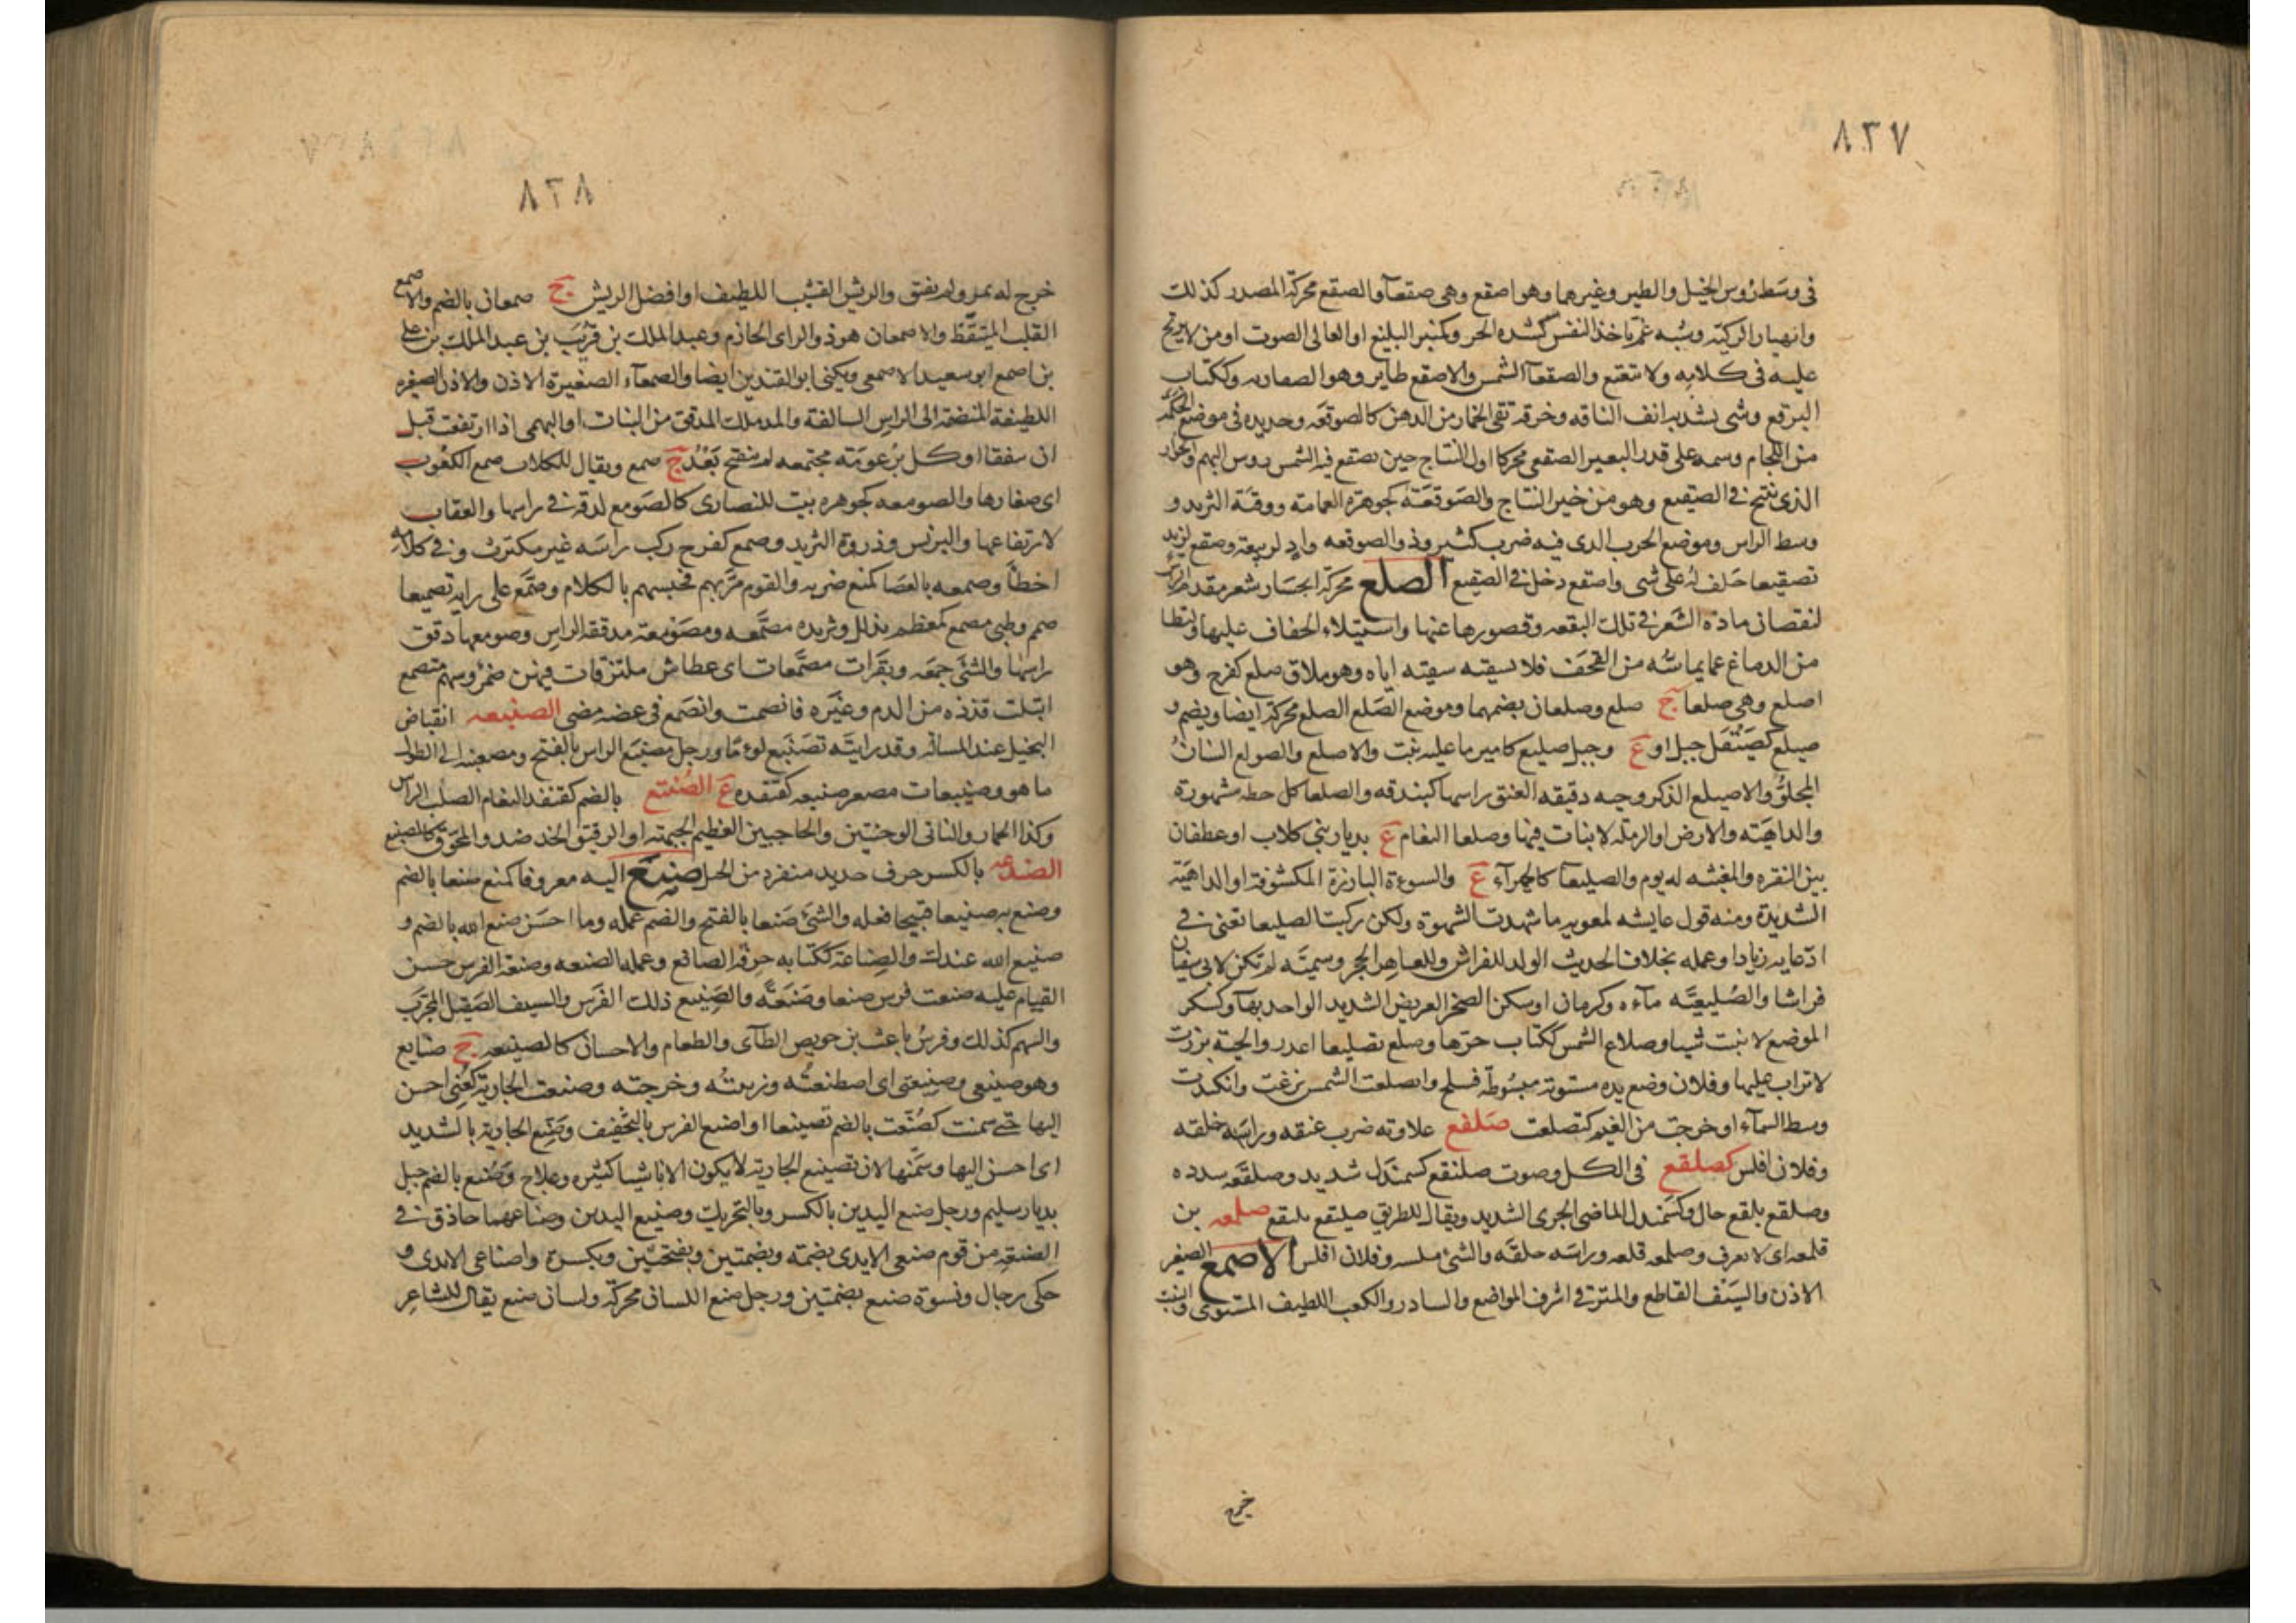 ٨٢٧
فى وسط رؤس الخيل والطير وغيرهما وهو اصقع وهى صقعآ والصقع محركة المصدر كذلك
وانهيار الركية وشبه غم ياخذ النفس كشدة الحر وكمنبر البليغ او العالى الصوت او من لا يرتج
عليه فى كلامه ولا يتعتع والصقعآ الشمس والاصقع طاير وهو الصفاريه وككتاب
البرقع وشى يشد به انف الناقه وخرقه تقى الخمار من الدهن كالصوقعه وحديده فى موضع الحكمه
من اللجام وسمه على قدر البعير الصقعى محركا اول النتاج حين تصقع فيه الشمس روس البهم والحوار
الذى ينتج فى الصقيع وهو من خير النتاج والصوقعة كجوهرة العمامة ووقبة الثريد و
وسط الراس وموضع الحرب الذى فيه ضرب كثير وذو الصوقعه واد لربيعة وصقع لزيد
تصقيعا حلف له على شى واصقع دخل فى الصقيع الصلع محركة انحسار شعر مقدم الراس
لنقصان مادة الشعر فى تلك البقعه وقصورها عنها واستيلاء الجفاف عليها ولتطا
من الدماغ عما يماسه من القحف فلا يسقيه سقيه اياه وهو ملاق صلع كفرح وهو
اصلع وهى صلعا ج صلع وصلعان بضمهما وموضع الصلع الصلع محركة ايضا ويضم و
صيلع كصيقل جبل او ع وجبل صليع كامير ما عليه نبت والاصلع والصولع السنان
المجلو والاصيلع الذكر وحيه دقيقه العنق راسها كبندقه والصلعا كل خطه مشهورة
والداهية والارض او الرمله لا نبات فيها وصلعا النعام ع بديار بنى كلاب او غطفان
بين النقره والمغيثه له يوم والصليعا كالحمرآء ع والسوءة البارزة المكشوفة او الداهية
الشديدة ومنه قول عايشه لمعويه ما شهدت الشهوة ولكن ركبت الصليعا تعنى فى
ادعايه زيادا وعمله بخلاف الحديث الولد للفراش وللعاهر الحجر وسمية لم تكن لابى سفيان
فراشا والصليعية مآءه وكرمان او سكر الصخر العريض الشديد الواحد بهآ وكسكر
الموضع لا نبت شيا وصلاع الشمس ككتاب حرها وصلع تصليعا اعذر والحية برزت
لا تراب عليها وفلان وضع يده مستوية مبسوطة فسلح وانصلعت الشمس بزغت وانكدت
وسط السمآء او خرجت من الغيم كتصلعت صلفع علاوته ضرب عنقه وراسه حلقه
وفلان افلس كصلقع فى الكل وصوت صلنقع كسمندل شديد وصلقعه سدده
وصلقع بلقع خال وكسمندل الماضى الجرى الشديد ويقال للطريق صلنقع بلنقع صلمعه بن
قلمعه اى لا يعرف وصلمعه قلعه وراسه حلقه والشئ ملسه وفلان افلس الاصمع الصغير
الاذن والسيف القاطع والمترقى اشرف المواضع والسادر والكعب اللطيف المستوى والنبت
خرج
٨٢٨
خرج له ثمر ولم يفتق والريش القشيب اللطيف او افضل الريش ج صمعان بالضم والاصمع
القلب المتيقظ والاصمعان هو ذو الراى الحازم وعبد الملك بن قريب بن عبد الملك بن على
بن اصمع ابو سعيد الاصمعى ويكنى ابو القندين ايضا والصمعآء الصغيرة الاذن والاذن الصغيره
اللطيفة المنضمة الى الراس السالفة والمدملك المدقق من النبات او البهمى اذا ارتفعت قبل
ان تتفقا او كل برعومة مجتمعه لم تنفتح بعد ج صمع ويقال للكلاب صمع الكعوب
اى صغارها والصومعه كجوهره بيت للنصارى كالصومع لدقة فى راسها والعقاب
لارتفاعها والبرنس وذروة الثريد وصمع كفرح ركب راسه غير مكترث وفى كلامه
اخطأ وصمعه بالعصا كمنع ضربه والقوم مر بهم فحبسهم بالكلام وصمع على رايه تصميعا
صمم وظبى مصمع كمعظم مذلل وثريده مصمعه ومصومعة مدققة الراس وصومعها دقق
راسها والشئ جمعه وبقرات مصمعات اى عطاش ملتزقات فيهن ضمر وسهم متصمع
ابتلت قذذه من الدم وغيره فانصمت وانصمع فى غضبه مضى الصنيعه انقباض
البخيل عند المسالة وقد رايته تصنبع لوءما ورجل مصنبع الراس بالفتح ومصعنبه الى الطول
ما هو وصنيبعات مصغر صنبعه كقنفذه ع الصنتع بالضم كقنفذ النعام الصلب الراس
وكذا الحمار والناتى الوجنتين والحاجبين العظيم الجبهة او الرقيق الخد ضد والمحرق كالصنبع
الصندعه بالكسر حرف حديد منفرد من الجبل صنع اليه معروفا كمنع صنعا بالضم
وصنع به صنيعا قبيحا فعله والشئ صنعا بالفتح والضم عمله وما احسن صنع الله بالضم و
صنيع الله عندك والصناعة ككتابه حرفة الصانع وعمله الصنعه وصنعة الفرس حسن
القيام عليه صنعت فرس صنعا وصنعة والصنيع ذلك الفرس والسيف الصقيل المجرب
والسهم كذلك وفرس باعث بن حويص الطآى والطعام والاحسان كالصنيعه ج صنايع
وهو صنيعى وصنيعتى اى اصطنعته وربيته وخرجته وصنعت الجارية كعنى احسن
اليها حتى سمنت كصنعت بالضم تصنيعا او اصنع الفرس بالتخفيف وصنع الجارية بالشديد
اى احسن اليها وسمنها لان تصنيع الجارية لا يكون الا باشيا كثيره وعلاج وصنع بالضم جبل
بديار سليم ورجل صنع اليدين بالكسر وبالتحريك وصنيع اليدين وصناعهما حاذق فى
الصنعة من قوم صنعى الايدى بضمة وبضمتين وبفتحتين وبكسرة واصناعى الايدى و
حكى رجال ونسوة صنع بضمتين ورجل صنع اللسان محركة ولسان صنع يقال للشاعر